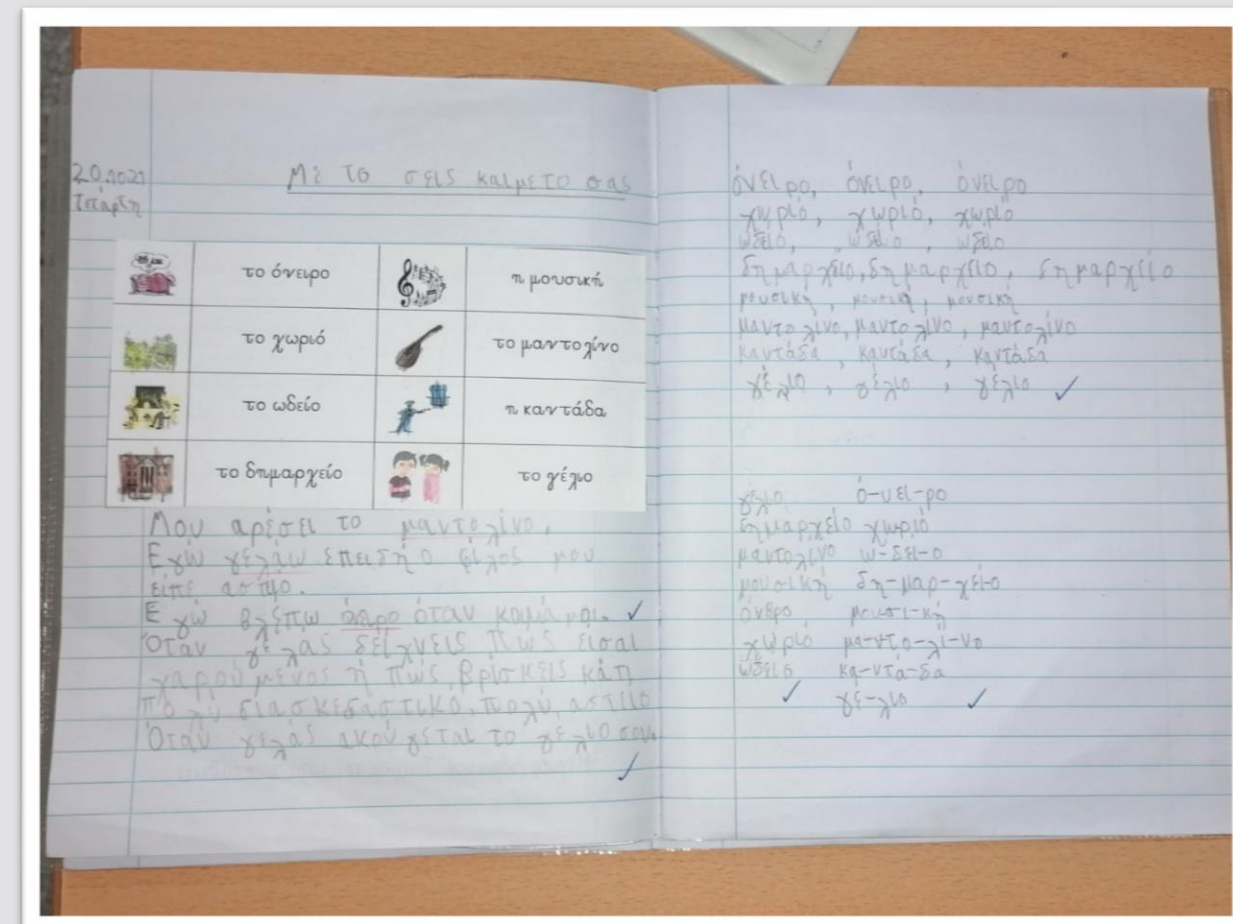 20.10.21
Τετάρτη
Με το σεις και με το σας
το όνειρο η μουσική
το χωριό το μαντολίνο
το ωδείο η καντάδα
το δημαρχείο το γέλιο
Μου αρέσει το μαντολίνο.
Εγώ γελάω επειδή ο φίλος μου
είπε αστείο.
Εγώ βλέπω όνειρο όταν κοιμάμαι.
Όταν γελάς δείχνεις πως είσαι
χαρούμενος ή πως βρίσκεις κάτι
πολύ διασκεδαστικό, πολύ αστείο
Όταν γελάς ακούγεται το γέλιο σου.
όνειρο, όνειρο, όνειρο
χωριό, χωριό, χωριό
ωδείο, ωδείο, ωδείο
δημαρχείο, δημαρχείο, δημαρχείο
μουσική, μουσική, μουσική
μαντολίνο, μαντολίνο, μαντολίνο
καντάδα, καντάδα, καντάδα
γέλιο, γέλιο, γέλιο
γέλιο ό-νει-ρο
δημαρχείο χωριό
μαντολίνο ω-δεί-ο
μουσική δη-μαρ-χεί-ο
όνερο μουσι-κή
χωριό μα-ντο-λί-νο
ωδείο κα-ντά-δα
γέ-λιο